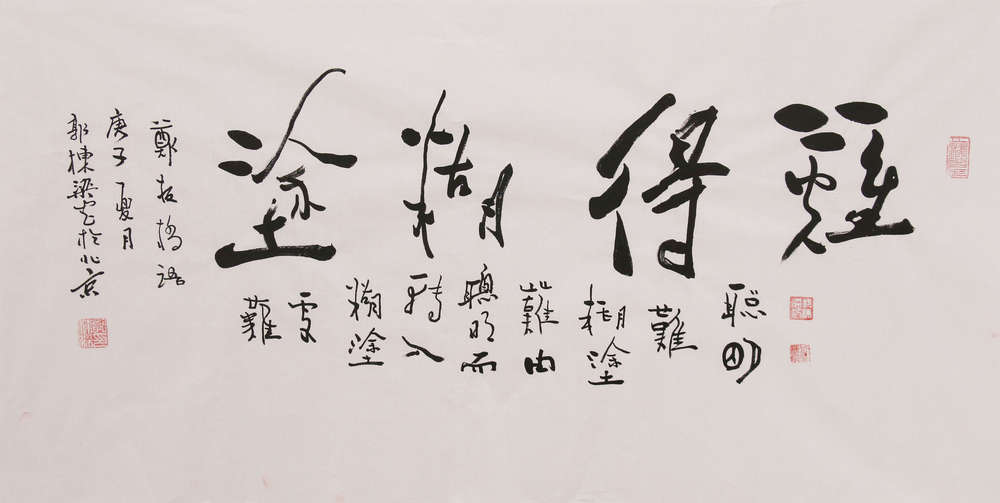 難得糊塗
聰明
難
糊塗
難由
聰明而
轉入
糊塗
更
難
鄭板橋語
庚子夏月
郭棟梁書於北京